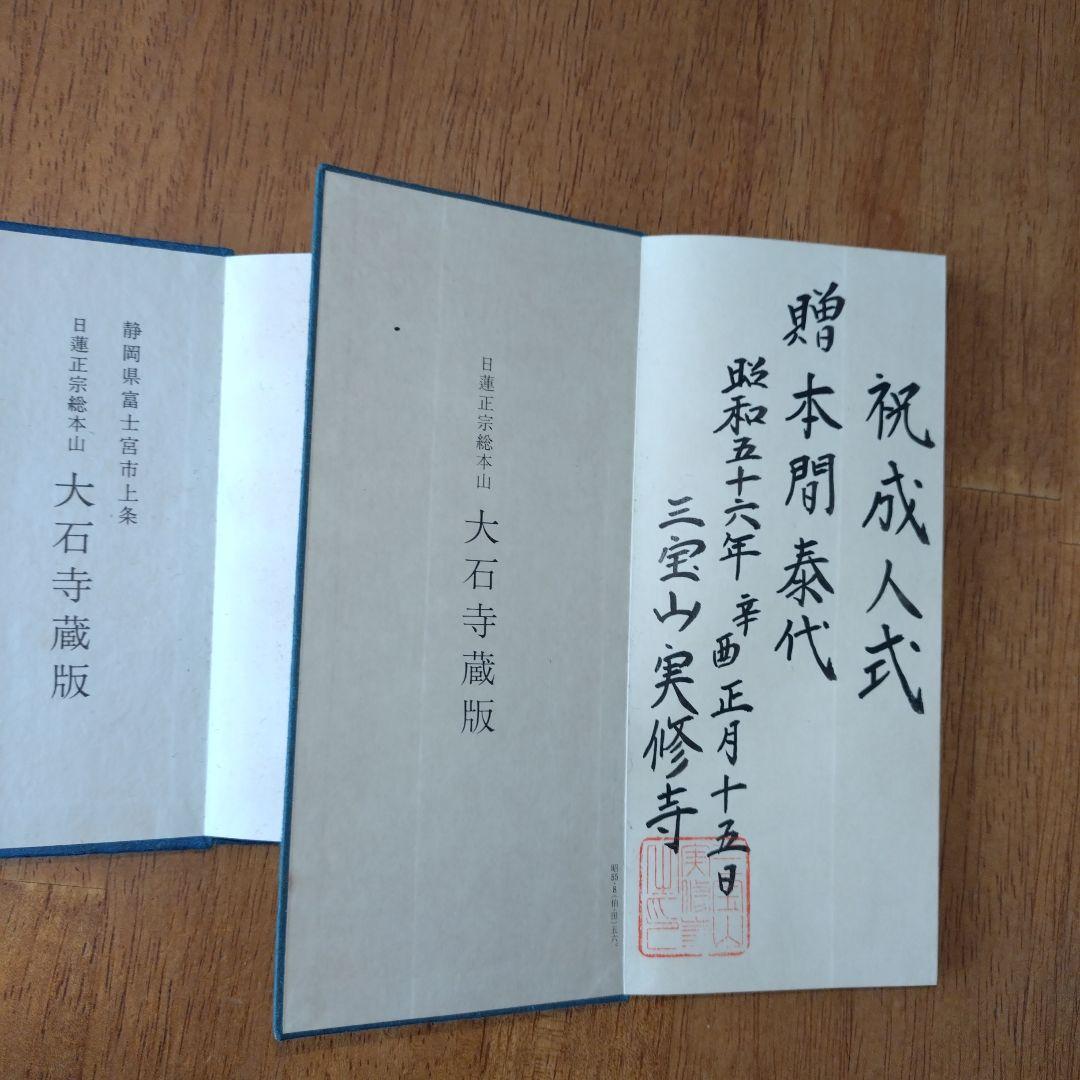 祝成人式
贈 本間泰代
昭和五十六年 辛酉 正月十五日
三宝山実修寺
日蓮正宗総本山 大石寺蔵版
静岡県富士宮市上条
日蓮正宗総本山 大石寺蔵版